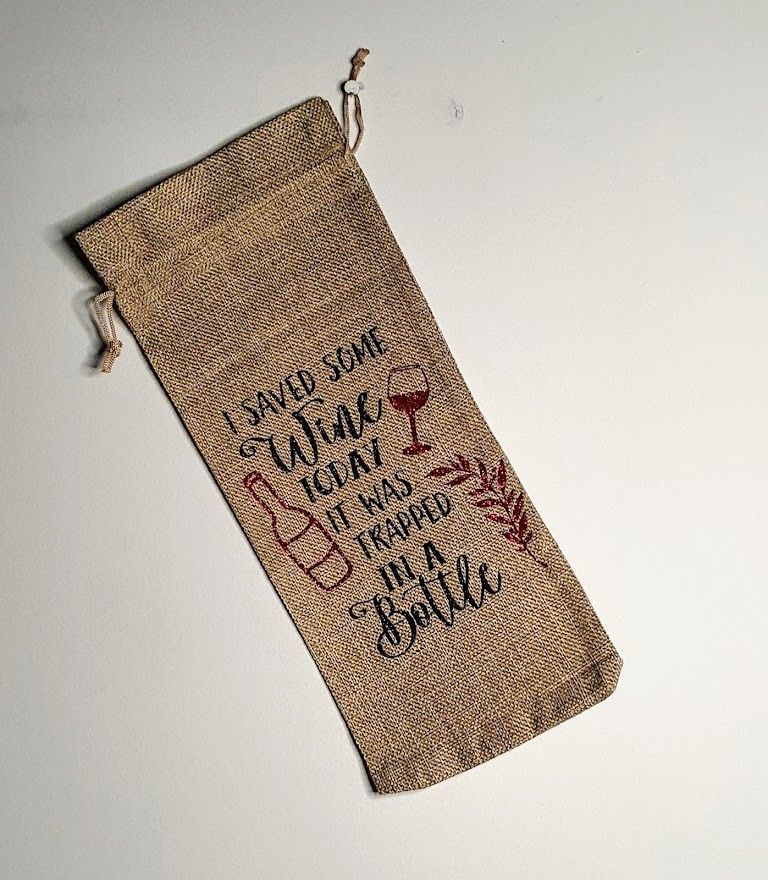 I SAVED SOME
Wine
TODAY
IT WAS
TRAPPED
IN A
Bottle